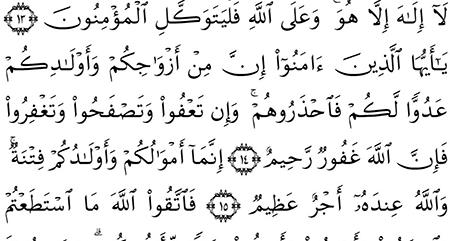 لَآ إِلَـٰهَ إِلَّا هُوَ ۚ وَعَلَى ٱللَّهِ فَلْيَتَوَكَّلِ ٱلْمُؤْمِنُونَ ۝١٣
يَـٰٓأَيُّهَا ٱلَّذِينَ ءَامَنُوٓا۟ إِنَّ مِنْ أَزْوَٰجِكُمْ وَأَوْلَـٰدِكُمْ
عَدُوًّا لَّكُمْ فَٱحْذَرُوهُمْ ۚ وَإِن تَعْفُوا۟ وَتَصْفَحُوا۟ وَتَغْفِرُوا۟
فَإِنَّ ٱللَّهَ غَفُورٌ رَّحِيمٌ ۝١٤ إِنَّمَآ أَمْوَٰلُكُمْ وَأَوْلَـٰدُكُمْ فِتْنَةٌ ۚ
وَٱللَّهُ عِندَهُۥٓ أَجْرٌ عَظِيمٌ ۝١٥ فَٱتَّقُوا۟ ٱللَّهَ مَا ٱسْتَطَعْتُمْ